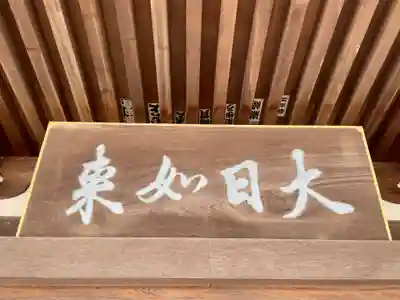 大日如来